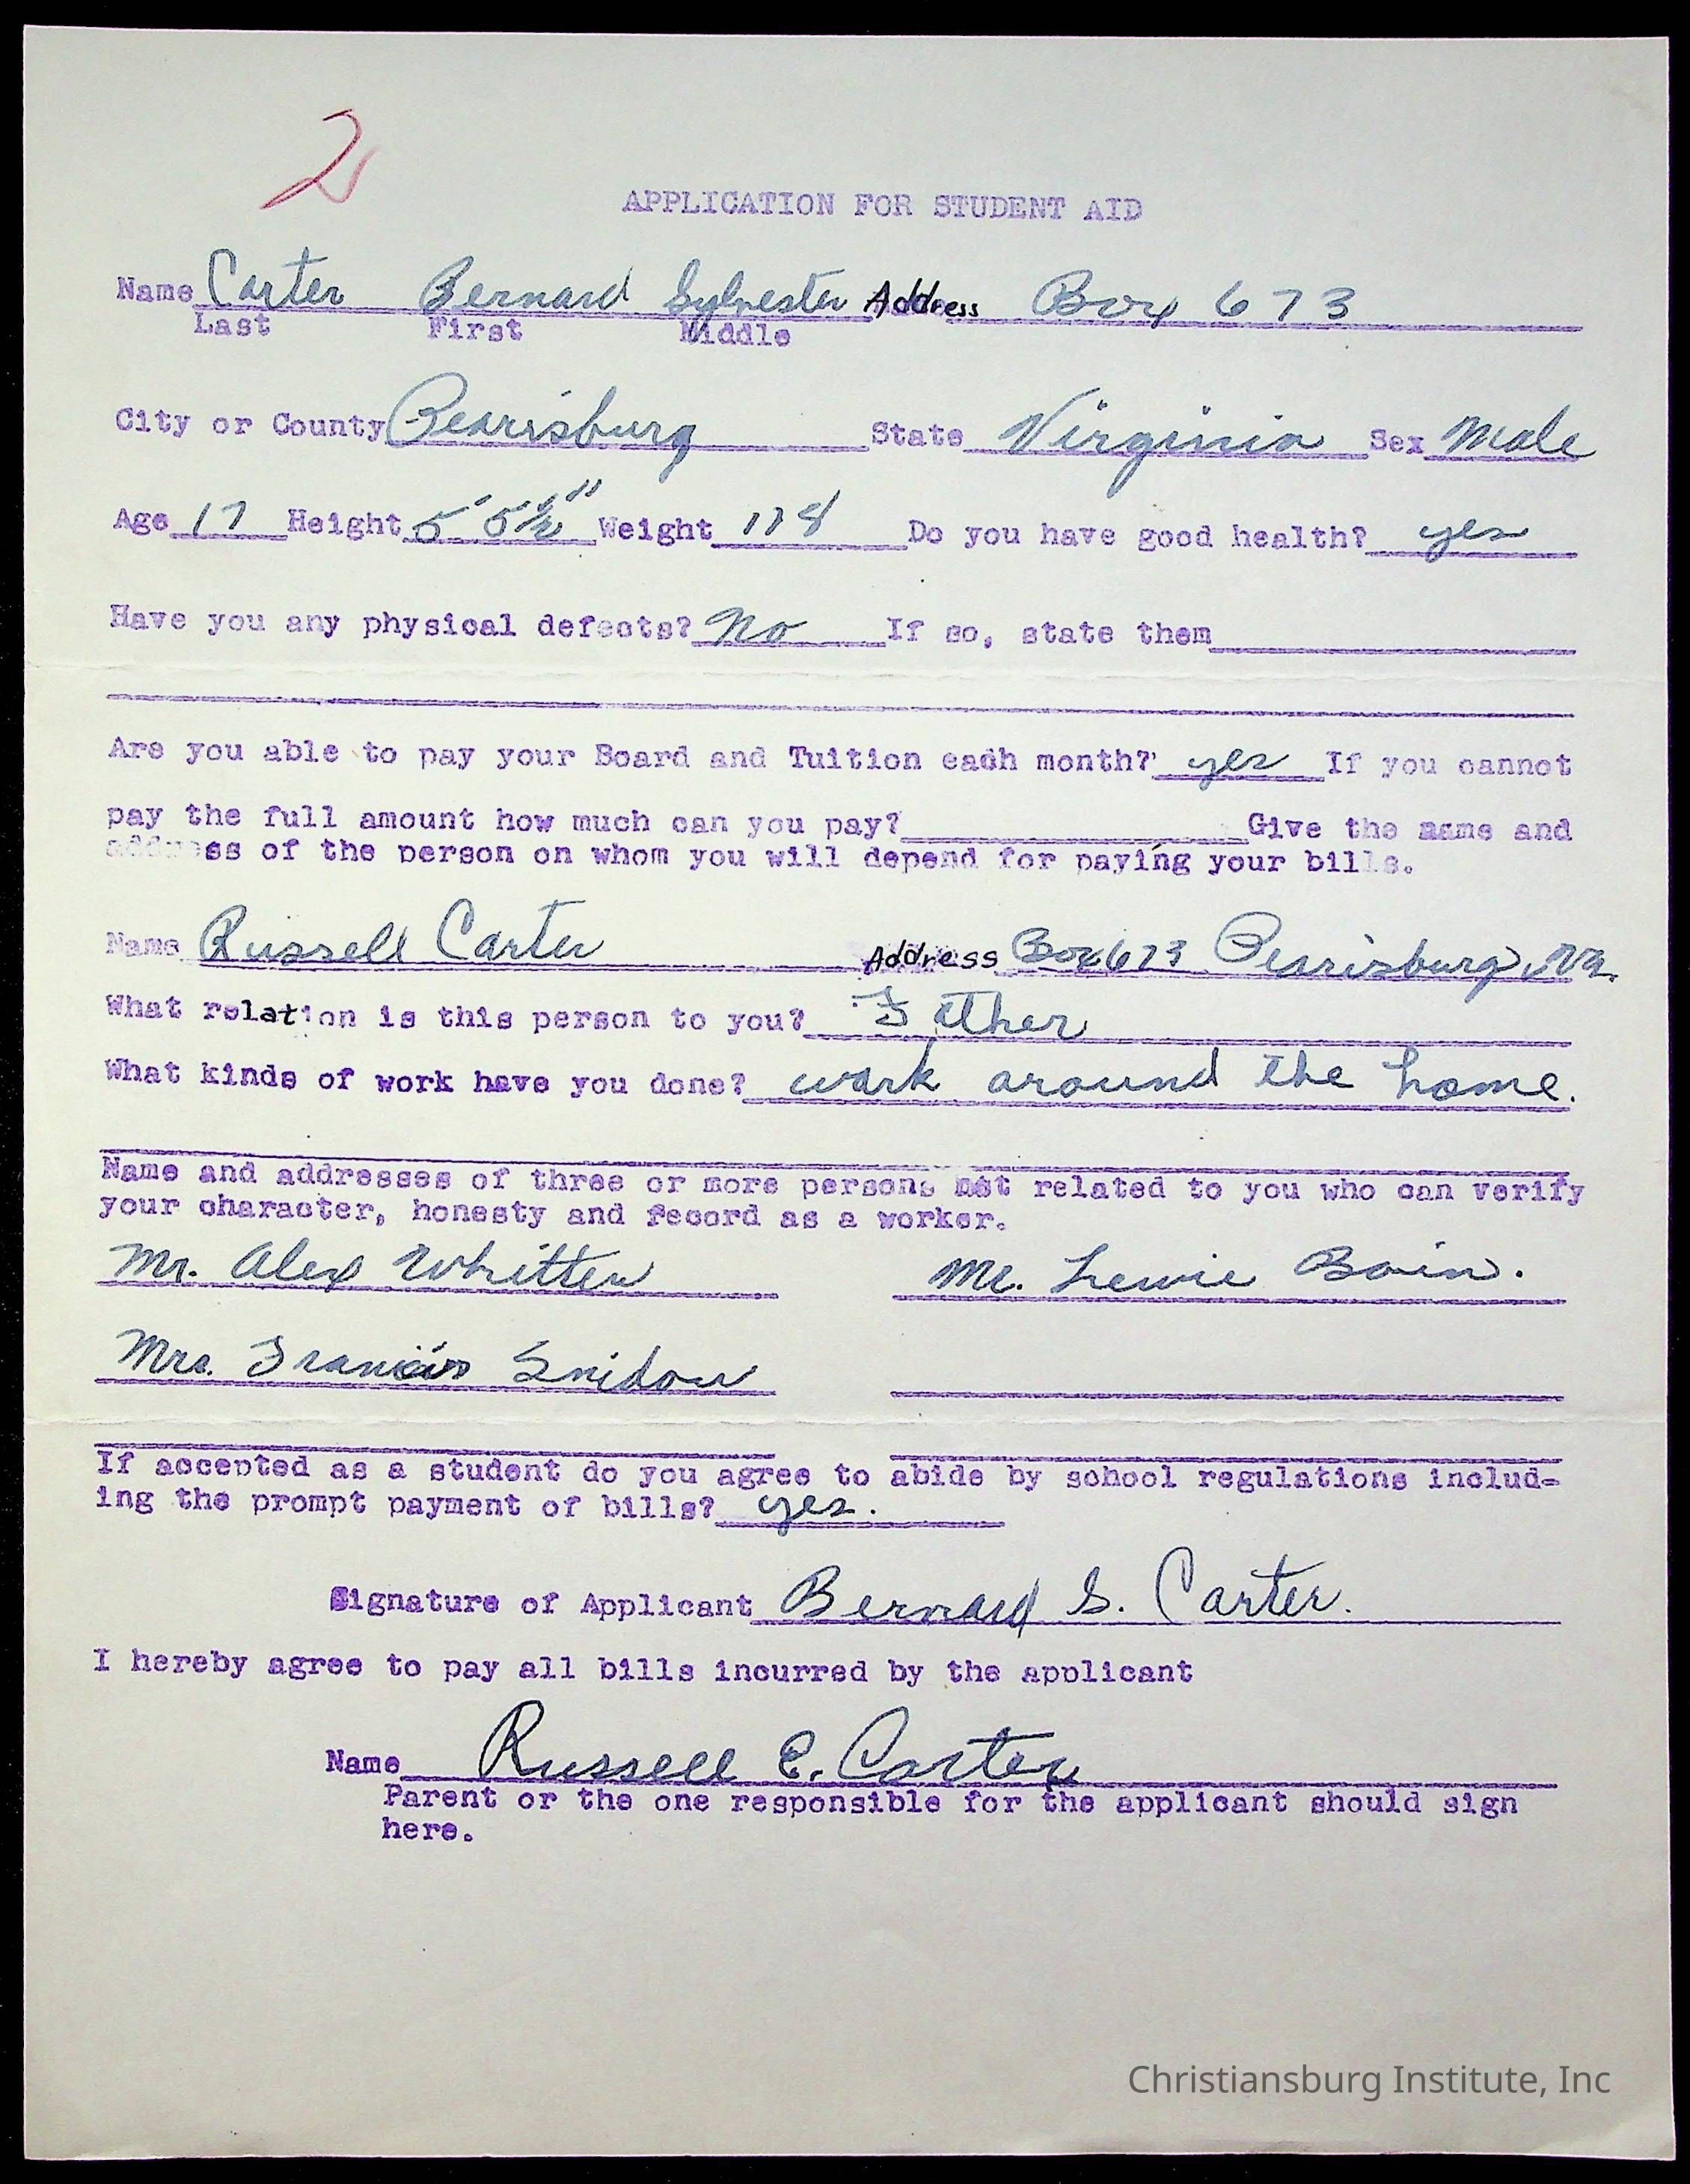 2
APPLICATION FOR STUDENT AID
Name Carter Bernard Sylvester Address Box 673
Last First Middle
City or County Pearisburg State Virginia Sex Male
Age 17 Height 5' 5½" Weight 118 Do you have good health? yes
Have you any physical defects? No If so, state them
Are you able to pay your Board and Tuition each month? yes If you cannot
pay the full amount how much can you pay? Give the name and
address of the person on whom you will depend for paying your bills.
Name Russell Carter Address Box 673 Pearisburg, Va.
What relation is this person to you? Father
What kinds of work have you done? work around the home.
Name and addresses of three or more persons not related to you who can verify
your character, honesty and record as a worker.
Mr. Alex Whitten Mr. Lewie Bain.
Mrs. Francis Snidow
If accepted as a student do you agree to abide by school regulations includ-
ing the prompt payment of bills? yes.
Signature of Applicant Bernard S. Carter.
I hereby agree to pay all bills incurred by the applicant
Name Russell E. Carter
Parent or the one responsible for the applicant should sign
here.
Christiansburg Institute, Inc